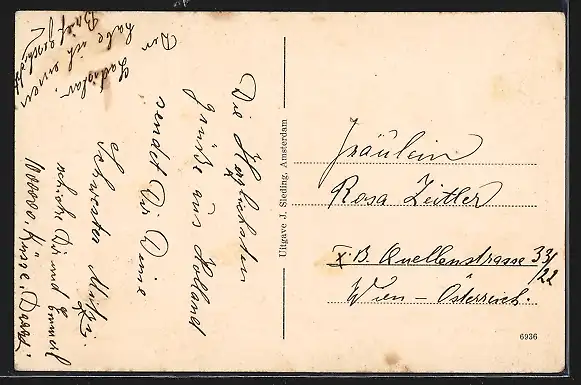 Die Herzlichsten
Grüße aus Holland
sendet Dir Deine
Schwester Mitzi
schicke Dir und Emmerl
100000. Küsse.
Der
Ladislav.
habe ich einen
Brief geschickt
Uitgave J. Sleding, Amsterdam
Fräulein
Rosa Zeitler
X. B. Quellenstrasse 33/
22
Wien – Österreich.
6936